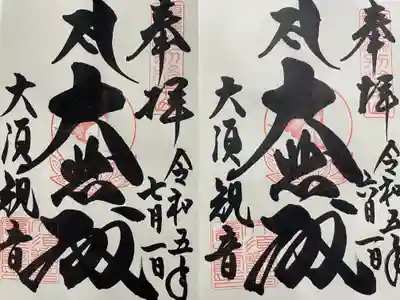 奉拝
令和五年
六月一日
大悲殿
大須観音
奉拝
令和五年
七月一日
大悲殿
大須観音